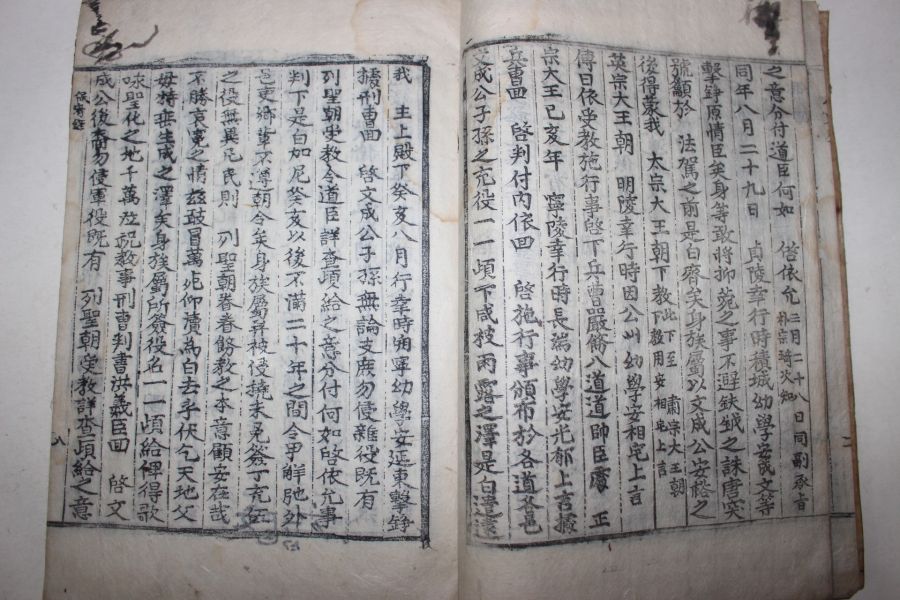 之意分付道臣何如 啓依允 二月二十八日同副承旨朴宗琦次知
同年八月二十九日 貞陵幸行時積城幼學安茂文等
擊錚原情臣矣身等敢將抑菀之事不避鈇鉞之誅唐突
號顧於 法駕之前是白齊矣身族屬以文成公安裕之
後得蒙我 太宗大王朝下教 此下至 肅宗大王朝下教用安相宅上言
英宗大王朝 明陵幸行時因公州幼學安相宅上言
傳曰依受教施行事啓下兵曹嚴飭八道道帥臣處 正
宗大王己亥年 寧陵幸行時長湍幼學安光郁上言據
兵曹回 啓判付內依回 啓施行事頒布於各道各邑
文成公子孫之充役一一頉下咸被雨露之澤是白遣逮
我 主上殿下癸亥八月行幸時甯寧幼學安延東擊錚
據刑曹回 啓文成公子孫無論支庶勿侵雜役既有
列聖朝受教令道臣詳查頉給之意分付何如啓依允事
判下是白加尼癸亥以後不滿二十年之間令乎解弛外
邑吏鄉輩不遵朝令矣身族屬裨被侵撓未免簽丁充伍
之役無異凡民則 列聖朝眷眷飭教之本意顧安在哉
不勝哀寃之情玆敢冒萬死仰瀆爲白去乎伏乞天地父
母特垂生成之澤矣身族屬所簽役名一一頉給俾得歌
咏聖化之地千萬泣祝教事刑曹判書洪義臣回 啓文
成公後裔勿侵軍役既有 列聖朝受教詳查頉給之意